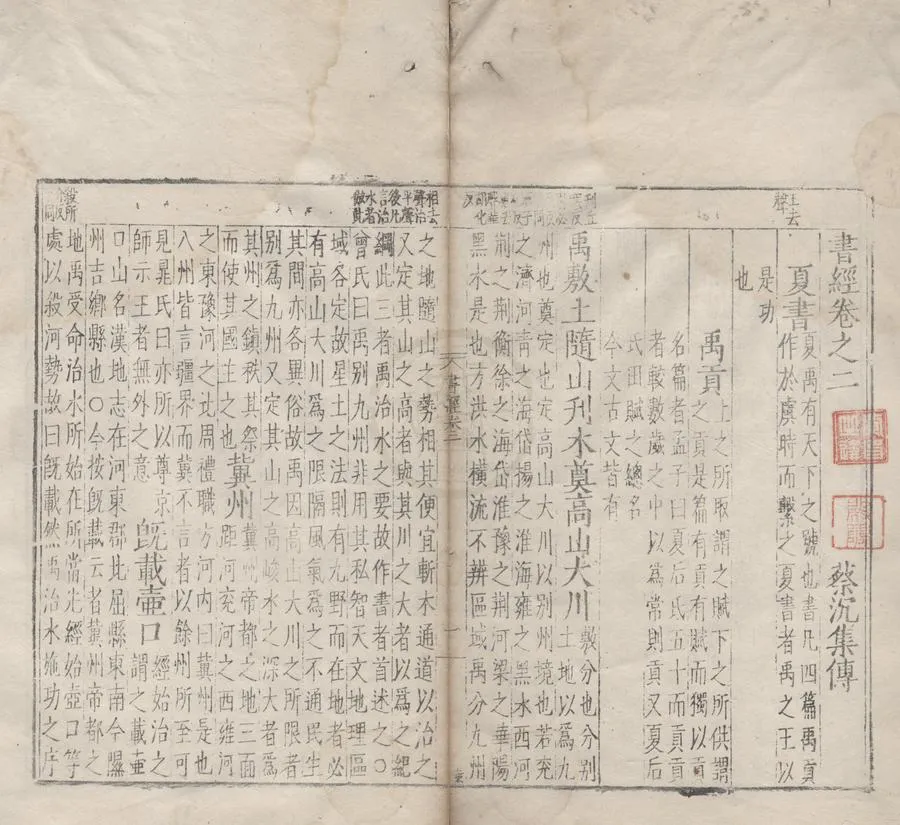 書經卷之二　蔡沉集傳
夏書
夏禹有天下之號也書凡四篇禹貢
作於虞時而繫之夏書者禹之王以
是功
也
禹貢
上之所取謂之賦下之所供謂
之貢是篇有貢有賦而獨以貢
名篇者孟子曰夏后氏五十而貢貢
者較數歲之中以為常則貢又夏后
氏田賦之總名
今文古文皆有
禹敷土隨山刋木奠高山大川
敷分也分别
土地以為九
州也奠定也定高山大川以别州境也若兖
之濟河青之海岱揚之淮海雍之黑水西河
荆之荆衡徐之海岱淮豫之荆河梁之華陽
黑水是也方洪水橫流不辨區域禹分九州
書經卷二
相去
聲治
平聲
後凡
言治
水者
倣此
之地隨山之勢相其便宜斬木通道以治之
又定其山之高者與其川之大者以爲之紀
綱此三者禹治水之要故作書者首述之○
曾氏曰禹别九州非用其私智天文地理區
域各定故星土之法則有九野而在地者必
有高山大川爲之限隔風氣爲之不通民生
其間亦各異俗故禹因高山大川之所限者
别爲九州又定其山之高峻水之深大者爲
其州之鎮秩其祭
而使其國主之也
冀州
冀州帝都之地三面
距河兖河之西雍河
之東豫河之北周禮職方河内曰冀州是也
八州皆言疆界而冀不言者以餘州所至可
見晁氏曰亦所以尊京
師示王者無外之意
旣載壺口
經始治之
謂之載壺
口山名漢地志在河東郡北屈縣東南今隰
州吉鄉縣也○今按旣載云者冀州帝都之
地禹受命治水所始在所當先經始壺口等
處以殺河勢故曰旣載然禹治水施功之序